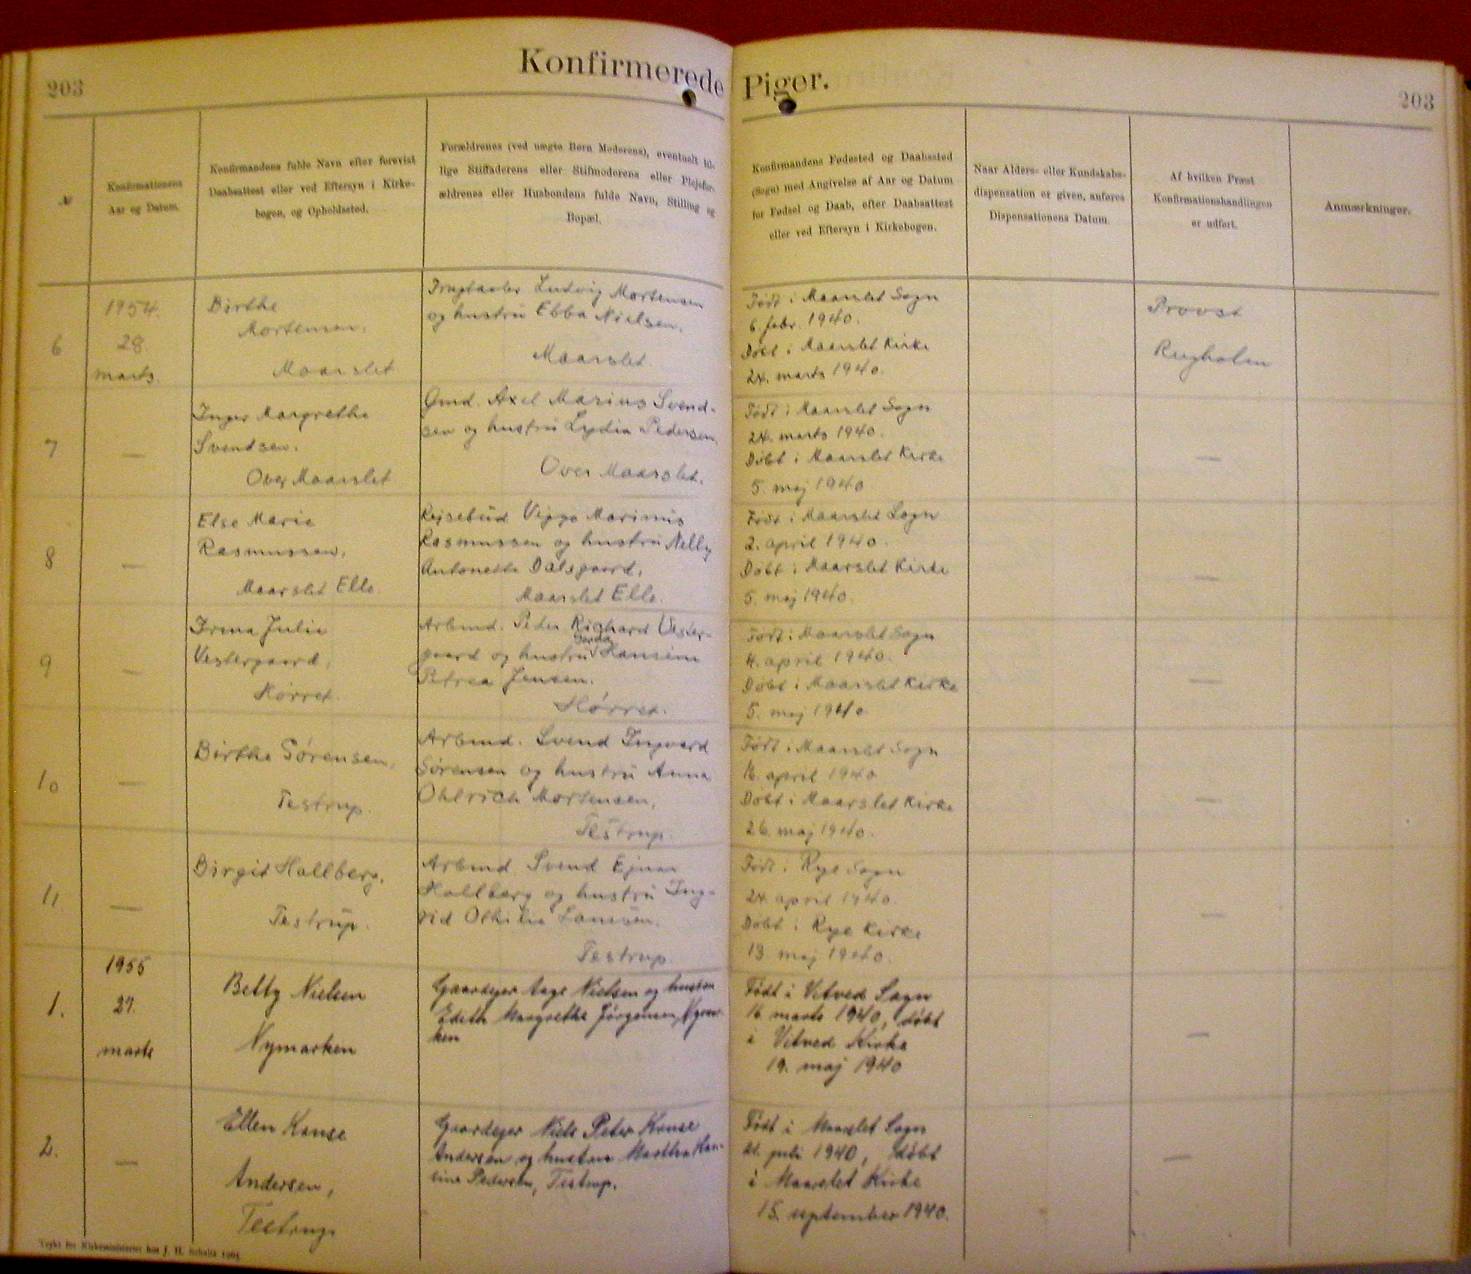 203
Konfirmerede Piger.
203
№
Konfirmationens
Aar og Datum.
Konfirmandens fulde Navn efter forevist
Daabsattest eller ved Eftersyn i Kirke-
bogen, og Opholdssted.
Forældrenes (ved uægte Børn Moderens), eventuelt til-
lige Stiffaderens eller Stifmoderens eller Plejefor-
ældrenes eller Husbondens fulde Navn, Stilling og
Bopæl.
Konfirmandens Fødested og Daabssted
(Sogn) med Angivelse af Aar og Datum
for Fødsel og Daab, efter Daabsattest
eller ved Eftersyn i Kirkebogen.
Naar Alders- eller Kundskabs-
dispensation er given, anføres
Dispensationens Datum.
Af hvilken Præst
Konfirmationshandlingen
er udført.
Anmærkninger.
6
1954.
28.
marts.
Birthe
Mortensen.
Maarslet
Ludvig Mortensen
og hustru Ebba Nielsen.
Maarslet.
Født i Maarslet Sogn
6. febr. 1940.
Døbt i Maarslet Kirke
24. marts 1940.
Provst
Rugholm
7
—
Inger Margrethe
Svendsen.
Over Maarslet
Gmd. Axel Marius Svend-
sen og hustru Lydia Pedersen,
Over Maarslet.
Født i Maarslet Sogn
24. marts 1940.
Døbt i Maarslet Kirke
5. maj 1940
—
8
—
Else Marie
Rasmussen,
Maarslet Elle.
Rejsebud Viggo Marinus
Rasmussen og hustru Nelly
Antonette Dalsgaard,
Maarslet Elle.
Født i Maarslet Sogn
2. april 1940.
Døbt i Maarslet Kirke
5. maj 1940.
—
9
—
Irma Julie
Vestergaard,
Hørret.
Arbmd. Peter Richard Vester-
gaard og hustru Gerda Hansine
Petrea Jensen.
Hørret.
Født i Maarslet Sogn
4. april 1940.
Døbt i Maarslet Kirke
5. maj 1940
—
10
—
Birthe Sørensen,
Testrup.
Arbmd. Svend Ingvard
Sørensen og hustru Anna
Ohlrich Mortensen,
Testrup.
Født i Maarslet Sogn
16. april 1940
Døbt i Maarslet Kirke
26. maj 1940.
—
11
—
Birgit Hallberg,
Testrup.
Arbmd Svend Ejnar
Hallberg og hustru Ing-
rid Othilie
Testrup.
Født i Rye Sogn
24. april 1940.
Døbt i Rye Kirke
13. maj 1940.
—
1.
1955
27.
marts
Betty Nielsen
Nymarken
Gaardejer Aage Nielsen og hustru
Edith Margrethe Jørgensen, Nymar-
ken
Født i Vitved Sogn
16 marts 1940, døbt
i Vitved Kirke
19. maj 1940
—
2.
—
Ellen Kanse
Andersen,
Testrup
Gaardejer Niels Peter Kanse
Andersen og hustru Martha Han-
sine Pedersen, Testrup.
Født i Maarslet Sogn
21. juli 1940, døbt
i Maarslet Kirke
15. september 1940.
—
Trykt for Kirkeministeriet hos J. H. Schultz